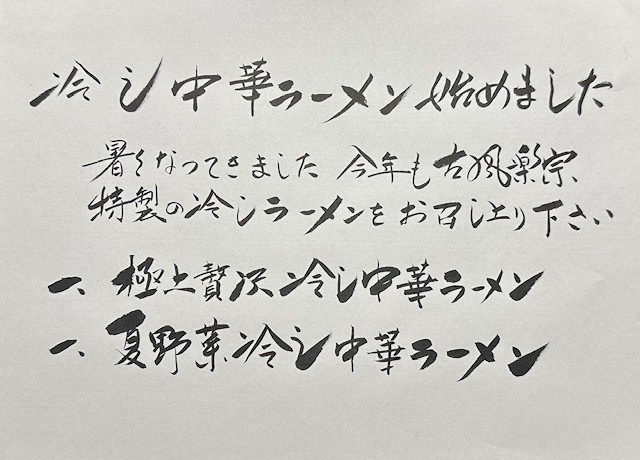 冷し中華ラーメン始めました
暑くなってきました 今年も古風楽宗
特製の冷しラーメンをお召し上り下さい
一、極上贅沢冷し中華ラーメン
一、夏野菜冷し中華ラーメン